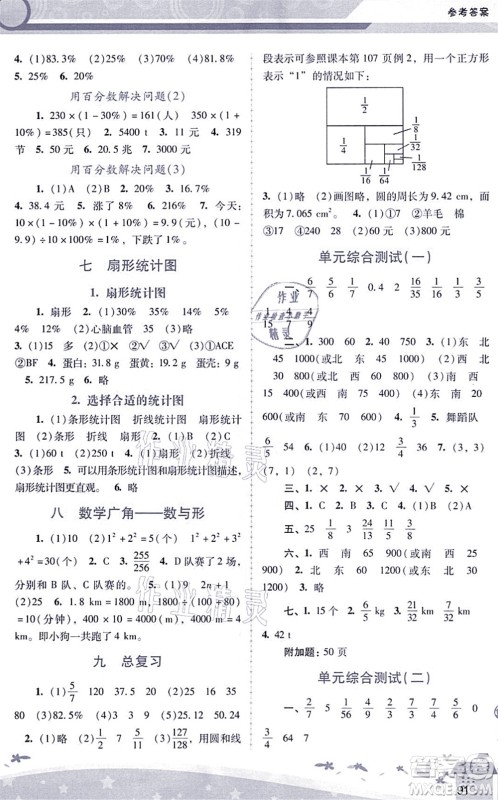 参考答案
4. (1)83.3% (2)25% (3)20% (4)20%
5. 25% 6. 20%
用百分数解决问题(2)
1. 230×(1-30%)=161(人) 350×(1+
10%)=385(只) 2. 5400 t 3. 11元 4. 319
节 5. 50元 6. 20.5兆 7. 3000元
用百分数解决问题(3)
1. (1)A (2)B 2. 12% 3. 20%
4. 38.4元 5. 涨了8% 6. 216% 7. 今天:
10×(1-10%)×(1+10%)=9.9(元),(10-
9.9)÷10×100%=1%,下跌了1%。
七 扇形统计图
1. 扇形统计图
1. 扇形 2. (1)30% 35% 15% 5%
4% 12% (2)心脑血管 35 (3)略
3. (1)15 多 (2)①× ②√ ③√ 4. ①AE
②BF 4. 蛋白:31.8g 蛋黄:19.2g 蛋壳:9
g 5. 217.5 g 6. 略
2. 选择合适的统计图
1. (1)条形统计图 折线统计图 扇形统计图
(2)条形 折线 扇形 2. (1)B (2)B (3)C
4. (1)扇形 (2)250 t 5. (1)扇形 (2)折线
(3)条形 5. 可以用条形统计图和扇形统计图描述,
扇形统计图更直观。 6. 略
八 数学广角——数与形
1. (1)10(2) 1²+2²=5(个) 1²+2²+3²
+4²=30(个) 2. C 3. 255/256 4. D队赛了2场,
分别和B队、C队赛的。 5. (1)9 2n+1
(2)25 6. 1.8 km=1800 m,1800÷(240-
60)=10(分),400×10=4000(m),4000 m=4
km。即小狗一共跑了4 km。
九 总复习
1. (1)5/7 120 37.5 20 (2)35 9
80 (3)82.5% (4)3 3 9 (5)144
2. (1)略 (2)7 5/11 (3)127/128,用圆和线
段表示可参照课本第107页例2,用一个正方形
表示“1”的情况如下:
1/2 1/4 1/8 1/32 1/16 1/64 1/128
3. (1)略 (2)画图略,圆的周长为9.42 cm,面
积为7.065 cm²。 4. (1)①7 ②羊毛 棉
③17 ④240 ⑤28 (2)60元 (3)800元
单元综合测试(一)
一、6/5 6/7 0.4 2 16/35 1/16 1/3 3/5
1/15 4/7 4/9
二、1. (1)东 北
45 1000(或北 东 45 1000) (2)东 南
30 750(或南 东 60 750) (3)西 北
30 600(或北 西 60 600) (4)西 南
20 400(或南 西 70 400) 2. 1 3. 舞蹈队
6/55 54 4. (1)36 (2)12 5. 3/4 36 6. (3,4)
(7,1)
三、× × √ × √
四、C B A C C
五、25 1/8 3 24/13 8/11 3/5
六、1. 西 南 60 900(或南 西 30
900) 2. 北 东 60 1200(或东 北 30
1200) 3. 略
七、1. 15个 2. 21/32 kg 3. 6/7 km
4. 42 t
附加题: 50页
单元综合测试(二)
一、2/7 5 1/56 4/9 2/7 3/4 5/7 9/7
3/4 64 7
91
作业精灵